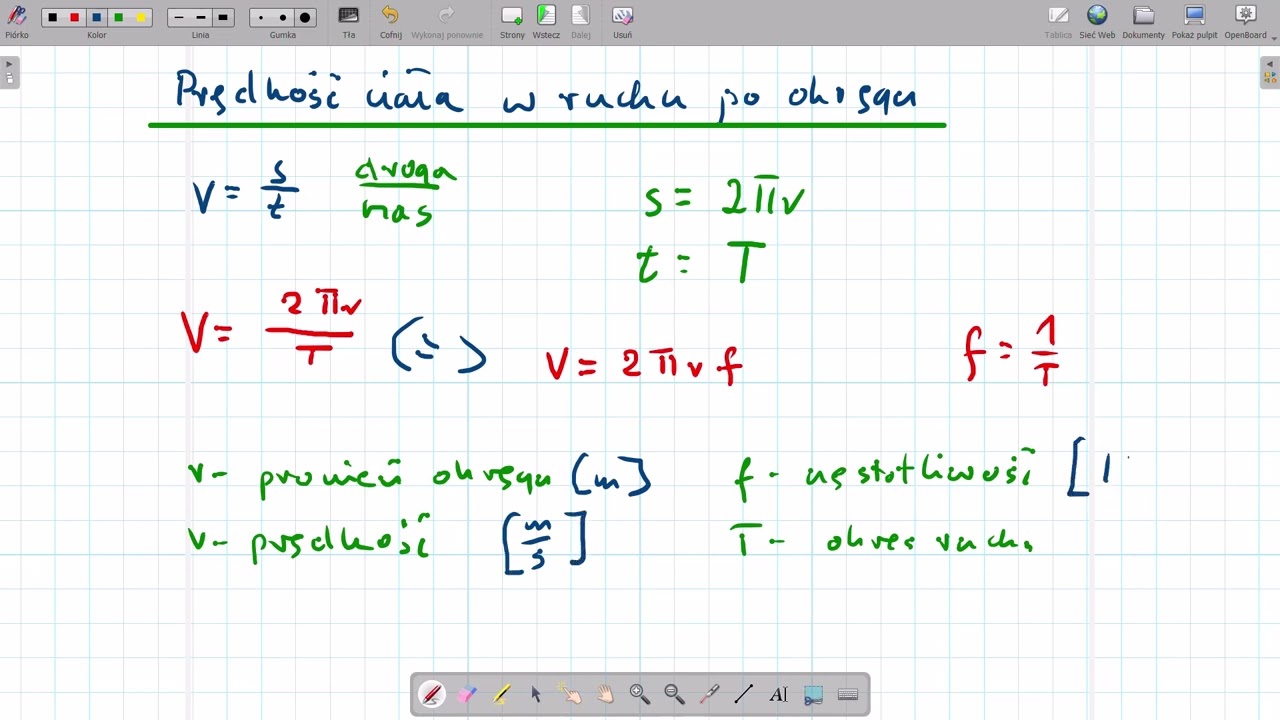 Piórko Kolor Linia Gumka Tła Cofnij Wykonaj ponownie Strony Wstecz Dalej Usuń Tablica Sieć Web Dokumenty Pokaż pulpit OpenBoard
Prędkość ciała w ruchu po okręgu
V = s/t droga/czas s = 2πr
t = T
V = 2πr/T (=) V = 2πr f f = 1/T
r - promień okręgu [m] f - częstotliwość [1
v - prędkość [m/s] T - okres ruchu